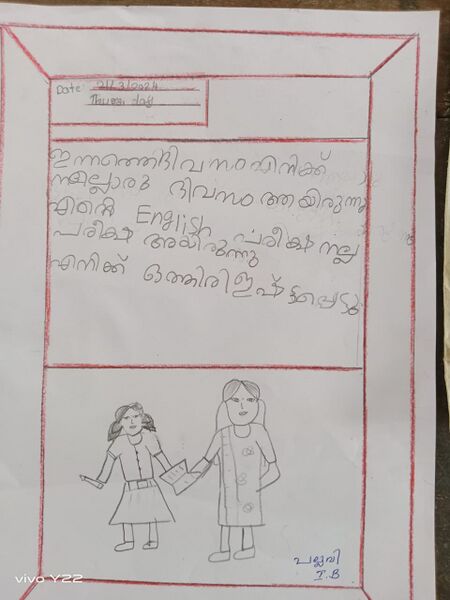 Date: 21/3/2024
Thursday
ഇന്നത്തെദിവസംഎനിക്ക്
നല്ലൊരു ദിവസംത്തയിരുന്നു
എന്റെ English പരീക്ഷ നല്ല
പരീക്ഷ അയിരുന്നു
എനിക്ക് ഒത്തിരിഇഷ്ട്ടപ്പെട്ടു
പല്ലവി
I.B
vivo Y22